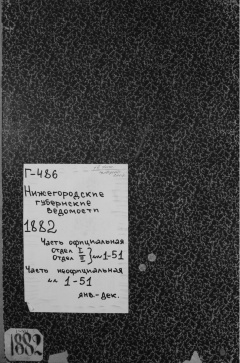 Г-486
Нижегородские
губернские
ведомости
1882
Часть официальная
отдел I
отдел II } №№ 1-51
Часть неофициальная
№№ 1-51
янв.-дек.
1882